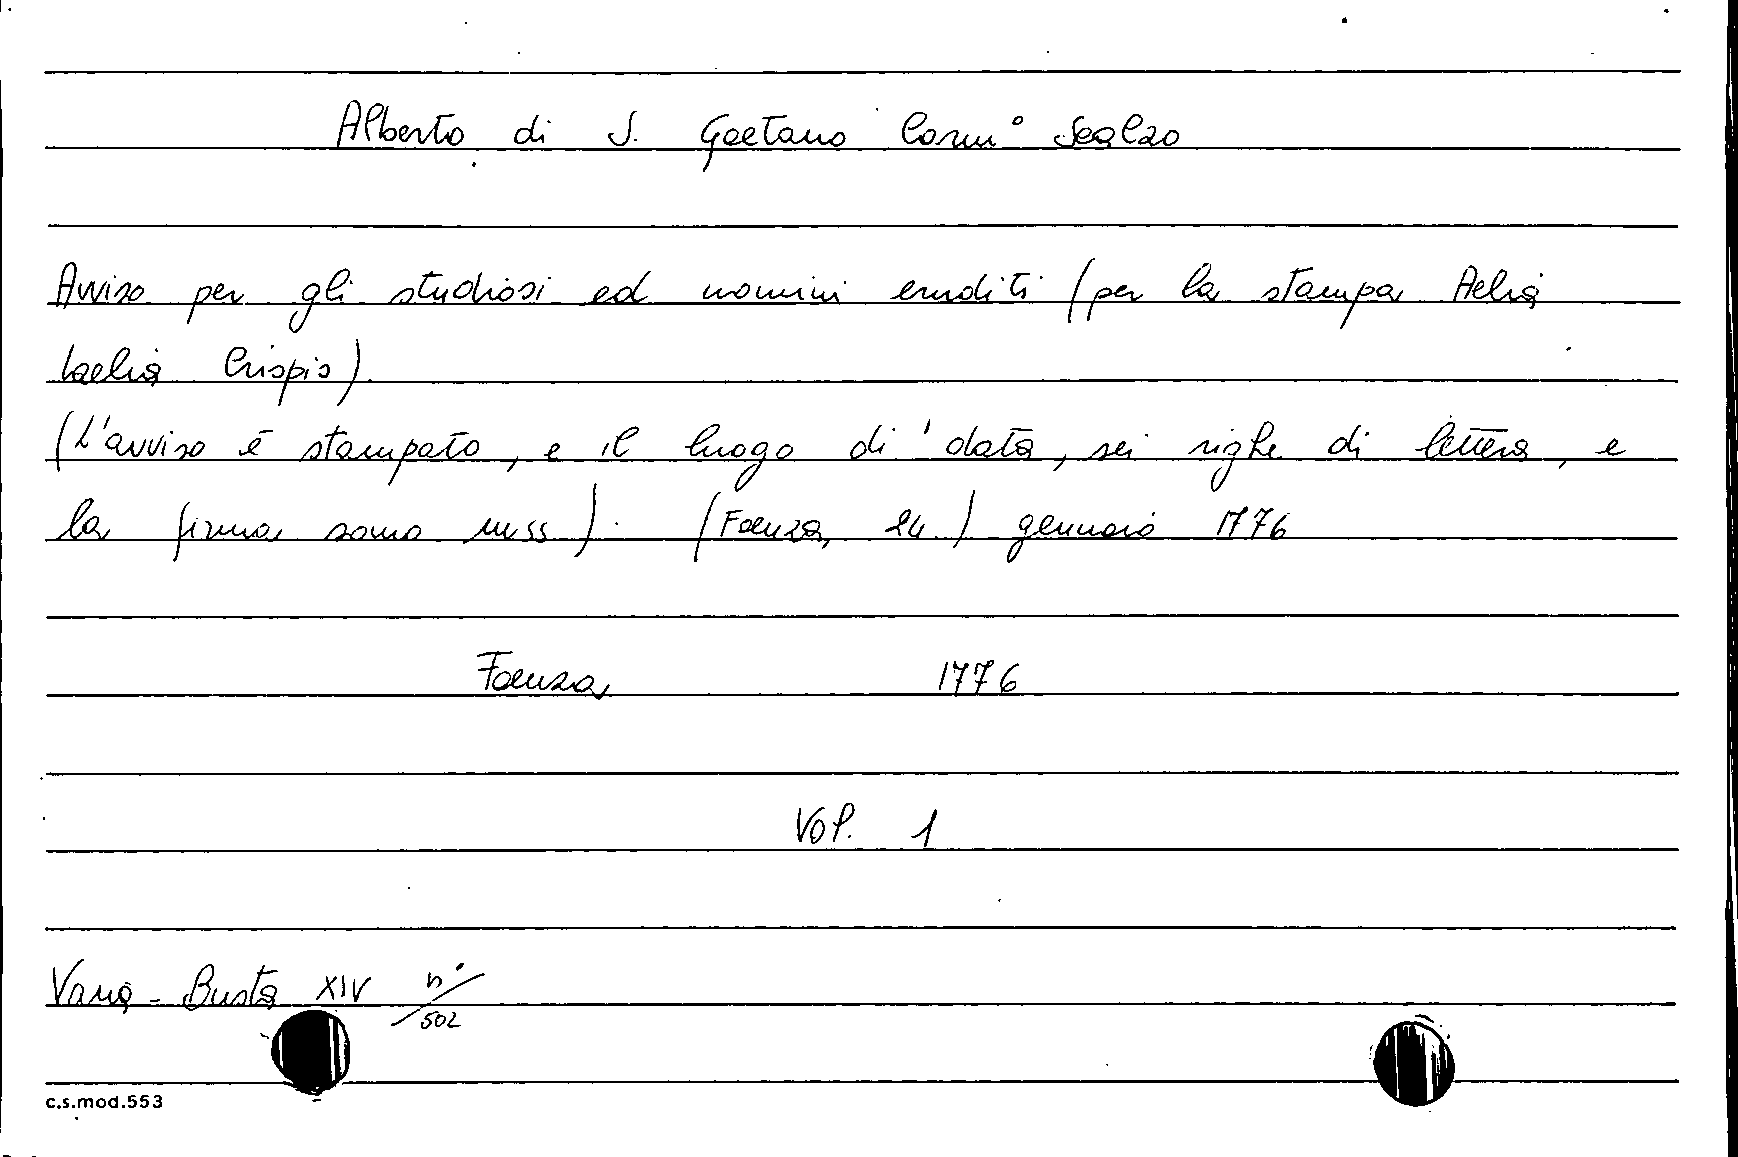 Alberto di S. Gaetano Carm° Scalzo
Avviso per gli studiosi ed uomini eruditi (per la stampa Aelia
Laelia Crispis)
(L'avviso è stampato, e il luogo di data, sei righe di lettera, e
la firma sono mss). (Faenza, 24) gennaio 1776
Faenza 1776
Vol. 1
Varia - Busta XIV n°/502
c.s.mod.553